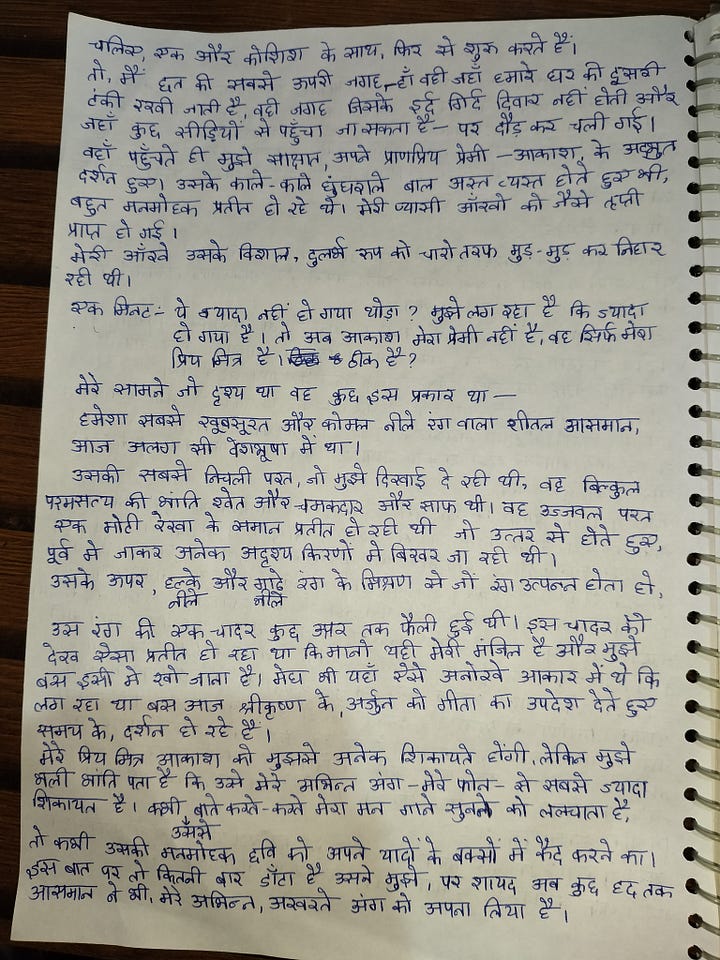 चलिए, एक और कोशिश के साथ, फिर से शुरू करते हैं।
तो, मैं छत की सबसे ऊपरी जगह,-हाँ वही जहाँ हमारे घर की दूसरी
टंकी रखी जाती है, वही जगह जिसके इर्द गिर्द दिवार नहीं होती और
जहाँ कुछ सीड़ियों से पहुँचा जा सकता है - पर दौड़ कर चली गई।
वहाँ पहुँचते ही मुझे साक्षात, अपने प्राणप्रिय प्रेमी - आकाश, के अद्भुत
दर्शन हुए। उसके काले-काले घुंघराले बाल अस्त व्यस्त होते हुए भी,
बहुत मनमोहक प्रतीत हो रहे थे। मेरी प्यासी आँखों को जैसे तृप्ती
प्राप्त हो गई।
मेरी आँखे उसके विशाल, दुर्लभ रूप को चारो तरफ मुड़-मुड़ कर निहार
रही थी।
एक मिनट:- ये ज्यादा नहीं हो गया थोड़ा? मुझे लग रहा है कि ज्यादा
हो गया है। तो अब आकाश मेरा प्रेमी नहीं है, वह सिर्फ मेरा
प्रिय मित्र है। ठीक है?
मेरे सामने जो दृश्य था वह कुछ इस प्रकार था —
हमेशा सबसे खूबसूरत और कोमल नीले रंग वाला शीतल आसमान,
आज अलग सी वेशभूषा में था।
उसकी सबसे निचली परत, जो मुझे दिखाई दे रही थी, वह बिल्कुल
परमसत्य की भांति श्वेत और चमकदार और साफ थी। वह उज्जवल परत
एक मोटी रेखा के समान प्रतीत हो रही थी जो उत्तर से होते हुए,
पूर्व मे जाकर अनेक अदृश्य किरणों मे बिखर जा रही थी।
उसके ऊपर, हल्के नीले और गाढ़े नीले रंग के मिश्रण से जों रंग उत्पन्न होता हो,
उस रंग की एक चादर कुछ ऊपर तक फैली हुई थी। इस चादर को
देख ऐसा प्रतीत हो रहा था कि मानो यही मेरी मंजिल है और मुझे
बस इसी मे खो जाना है। मेघ भी यहाँ ऐसे अनोखे आकार में थे कि
लग रहा था बस आज श्रीकृष्ण के, अर्जुन को गीता का उपदेश देते हुए
समय के, दर्शन हो रहे हैं।
मेरे प्रिय मित्र आकाश को मुझसे अनेक शिकायते होंगी, लेकिन मुझे
भली भांति पता है कि उसे मेरे अभिन्न अंग - मेरे फोन - से सबसे ज्यादा
शिकायत है। कभी उससे बाते करते-करते मेरा मन गाने सुनने को ललचाता है,
तो कभी उसकी मनमोहक छवि को अपने यादों के बक्सों में कैद करने का।
इस बात पर तो कितनी बार डाँटा है उसने मुझे, पर शायद अब कुछ हद तक
आसमान ने भी, मेरे अभिन्न, अखरते अंग को अपना लिया है।